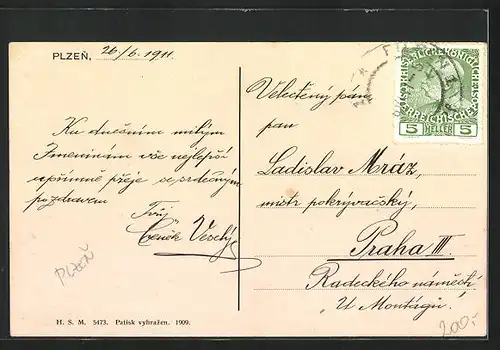 PLZEŇ, 26/6. 1911.
Ku dnešním milým
Jmeninám vše nejlepší
upřímně přeje se srdečným
pozdravem
Tvůj
Čeněk Veselý
PLZEŇ
H. S. M. 5473. Patisk vyhražen. 1909.
Velectěný pán
pan
Ladislav Mráz,
mistr pokrývačský,
Praha III.
Radeckého náměstí
U Montágů.
200,-
5 HELLER 5